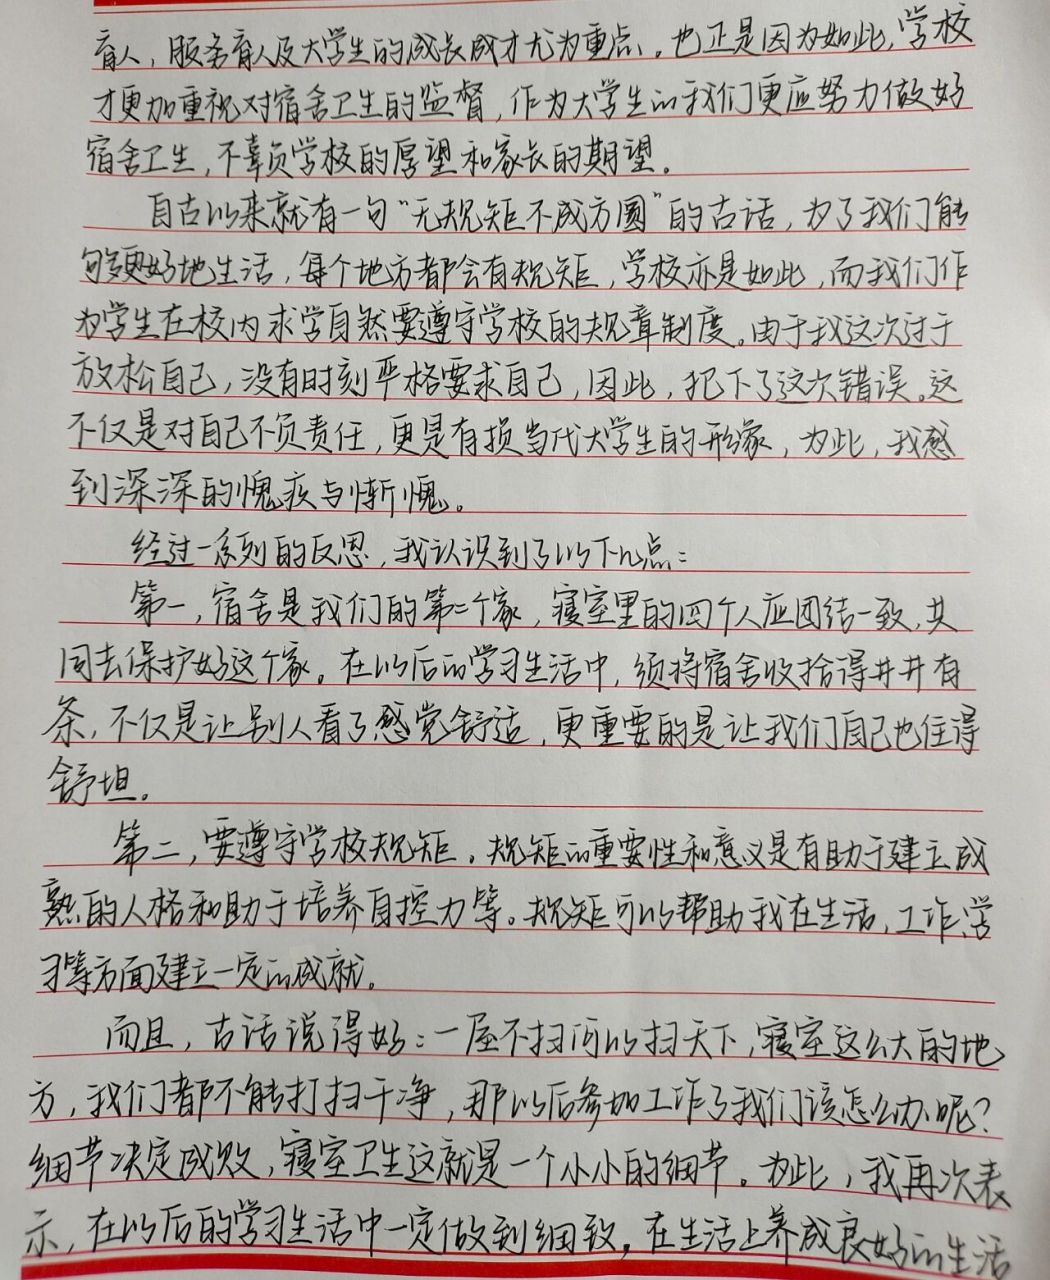 育人，服务育人及大学生的成长成才尤为重点。也正是因为如此，学校
才更加重视对宿舍卫生的监督，作为大学生的我们更应努力做好
宿舍卫生，不辜负学校的厚望和家长的期望。
自古以来就有一句“无规矩不成方圆”的古话，为了我们能
够更好地生活，每个地方都会有规矩，学校亦是如此，而我们作
为学生在校内求学自然要遵守学校的规章制度。由于我这次过于
放松自己，没有时刻严格要求自己，因此，犯下了这次错误。这
不仅是对自己不负责任，更是有损当代大学生的形象，为此，我感
到深深的愧疚与惭愧。
经过一系列的反思，我认识到了以下几点：
第一，宿舍是我们的第二个家，寝室里的四个人应团结一致，共
同去保护好这个家。在以后的学习生活中，须将宿舍收拾得井井有
条，不仅是让别人看了感觉舒适，更重要的是让我们自己也住得
舒坦。
第二，要遵守学校规矩。规矩的重要性和意义是有助于建立成
熟的人格和助于培养自控力等。规矩可以帮助我在生活，工作，学
习等方面建立一定的成就。
而且，古话说得好：一屋不扫何以扫天下，寝室这么大的地
方，我们都不能打扫干净，那以后参加工作了我们该怎么办呢？
细节决定成败，寝室卫生这就是一个小小的细节。为此，我再次表
示，在以后的学习生活中一定做到细致，在生活上养成良好的生活